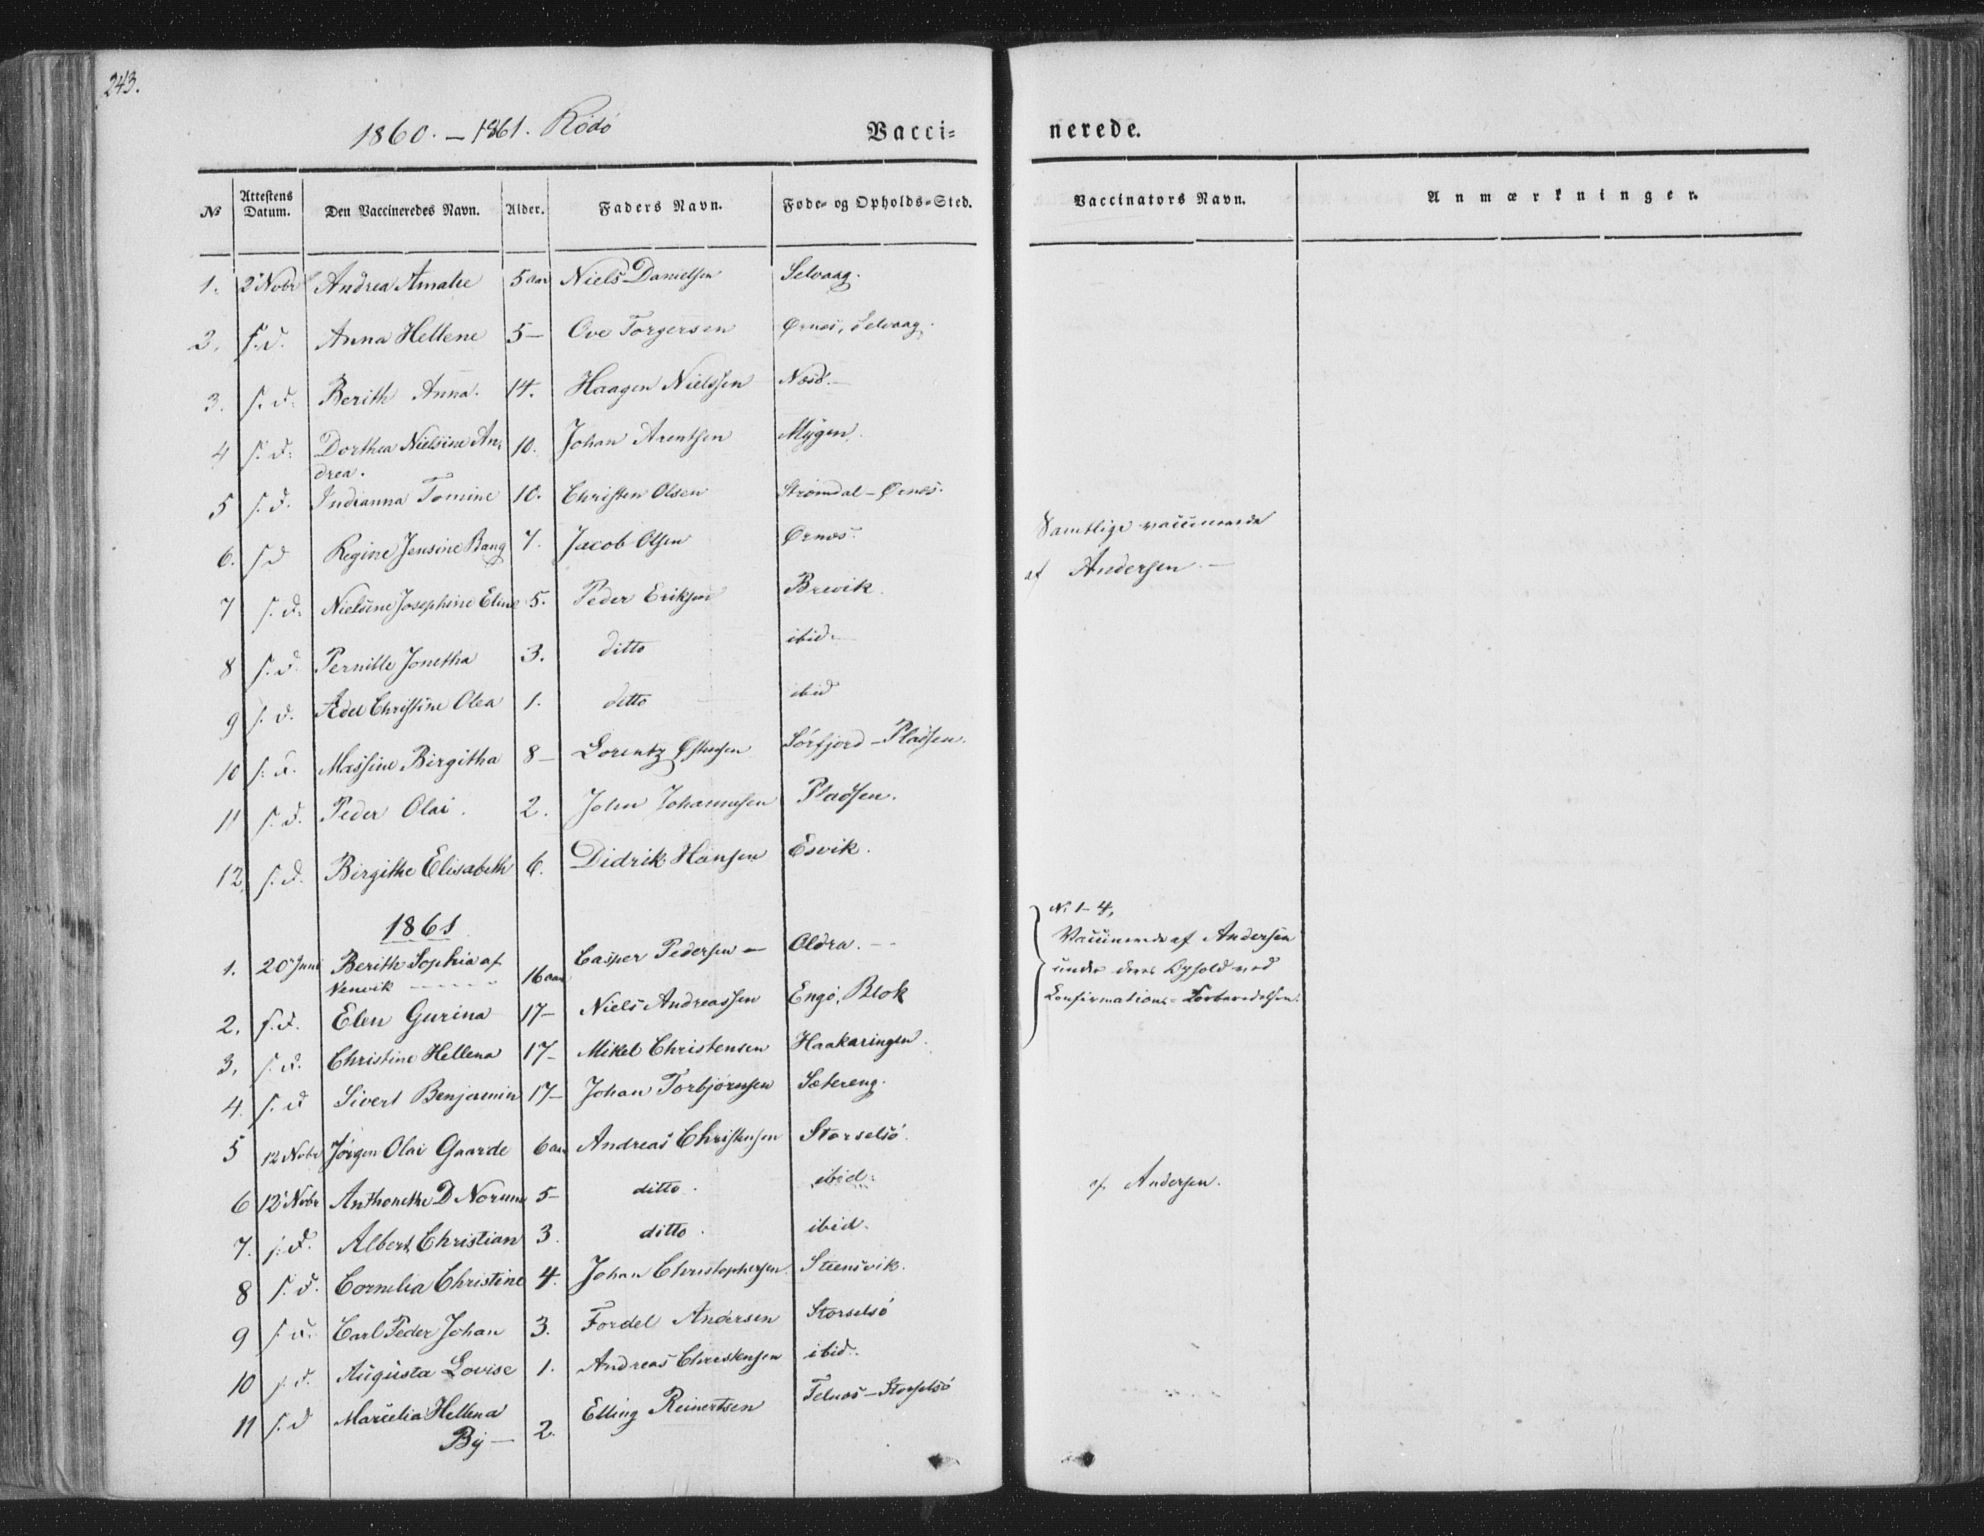 243.
1860. – 1861. Rödö
Vacci= nerede.
№ Attestens Datum. Den Vaccineredes Navn. Alder. Faders Navn. Føde- og Opholds-Sted. Vaccinators Navn. Anmærkninger.
1. 2 Nobr Andrea Amalie 5 aar Niels Danielsen Selvaag.
2. s.d. Anna Hellene 5– Ove Torgersen Ørnes, Selvaag.
3. s.d. Berith Anna. 14. Haagen Nielssen Nesö.–
4 s.d. Dorthea Nielsine An-
drea. 10. Johan Arentsen Mÿgen.
5 s.d. Indianna Tomine 10. Christen Olsen Strømdal – Ørnes.
6. s.d Regine Jensine Bang 7. Jacob Olsen Ørnes.
Samtlige vaccinerede
af Andersen. –
7 s.d. Nielsine Josephine Eline 5. Peder Eriksen Brevik.
8 s.d. Pernille Jonetha 3. ditto ibid.–
9 s.d. Adel Christine Olea 1. ditto ibid
10 s.d. Massine Birgitha 8– Lorentz Østensen Sörfjord – Pladsen.
11 s.d. Peder Olai. 2. John Johannesen Pladsen.
12 s.d. Birgithe Elisabeth 6. Didrik Hansen Esvik.
1861
1. 20 Juni Berith Sophia af
Venvik – – – 16 aar Casper Pedersen – Oldra. – –
N. 1–4,
Vaccinerede af Andersen
under deres Ophold ved
Confirmations-Forberedelsen.
2. s.d. Elen Gurina 17– Niels Andreassen Engö, Blok
3. s.d. Christine Hellena 17– Mikel Christensen Haakaringen.
4. s.d Sivert Benjamin 17– Johan Torbjørnsen Sætereng.
5 12 Nobr Jørgen Olai Gaarde 6 aar Andreas Christensen Storselsö.
6 12 Nobr Anthonethe D Norum 5– ditto. ibid.
af Andersen.
7. s.d. Albert Christian 3. ditto. ibid.
8 s.d. Cornelia Christine 4. Johan Christophersen. Steensvik.
9 s.d. Carl Peder Johan 3. Fordel Andersen Storselsö
10 s.d. Augusta Lovise 1. Andreas Christensen ibid.
11 s.d Marcelia Hellena
Bÿ – 2. Elling Reinertsen Telnes – Storselsö